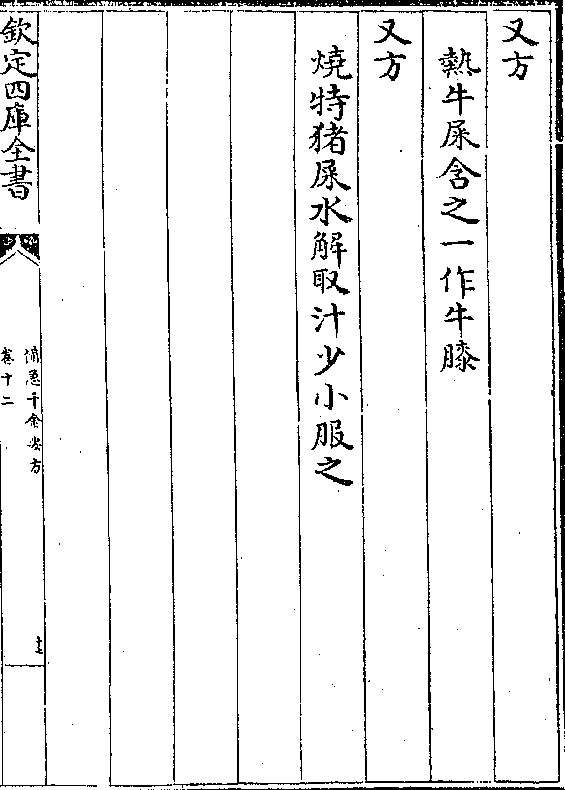 又方
熱牛屎含之一作牛膝
又方
燒特猪屎水解取汁少小服之
欽定四庫全書
備急千金要方
卷十二